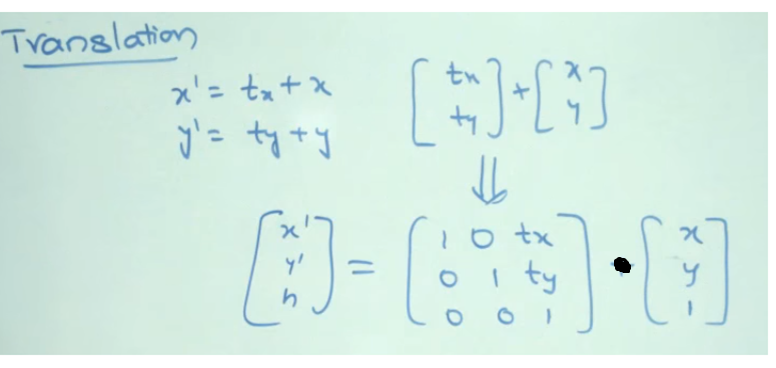 Translation
x' = tx + x [tx ty] + [x y]
y' = ty + y
⇓
[x' y' h] = [1 0 tx 0 1 ty 0 0 1] • [x y 1]